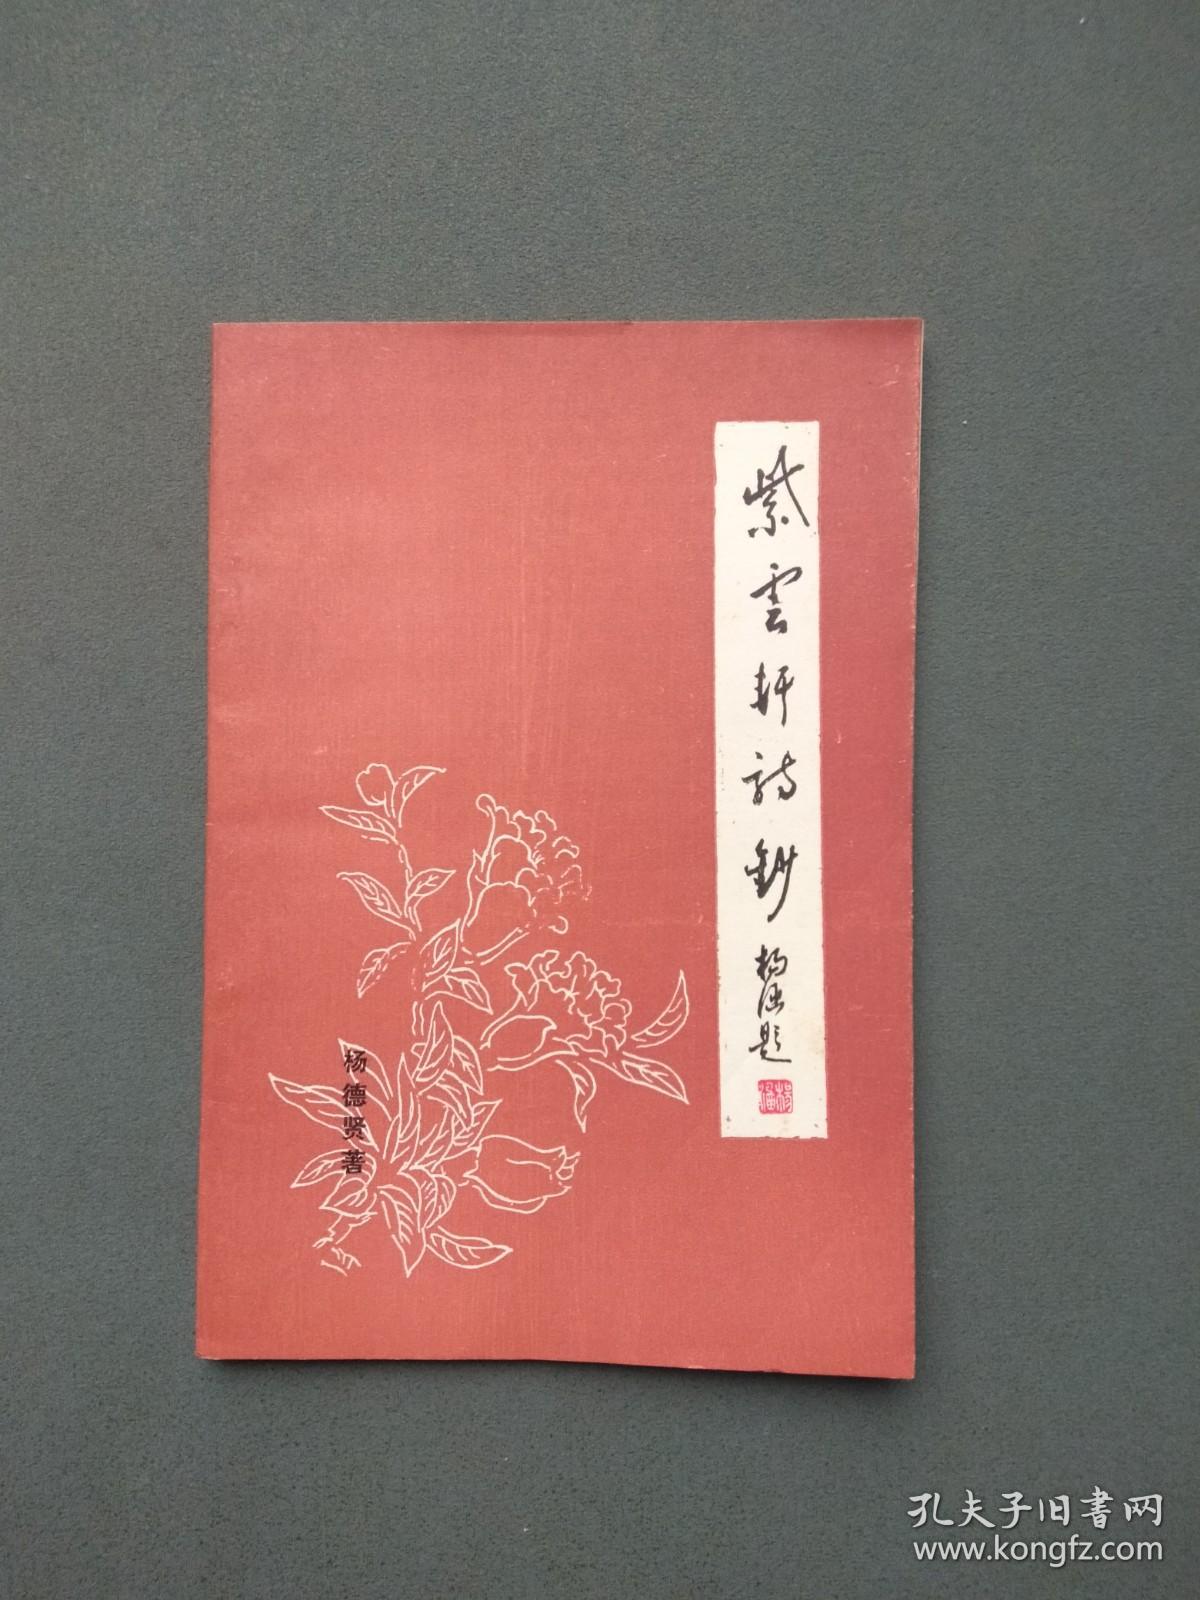 紫雲軒詩鈔
楊
題
杨德贤著
孔夫子旧书网
www.kongfz.com